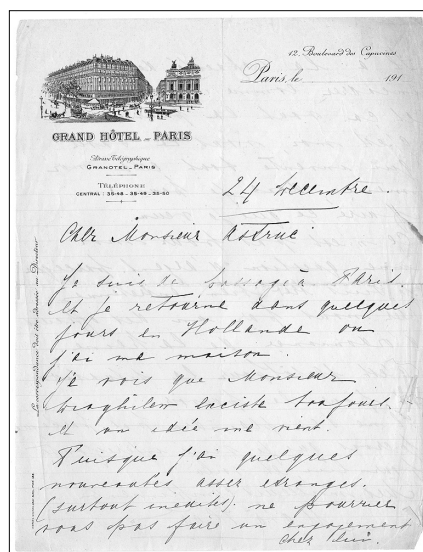 12, Boulevard des Capucines
Paris, le 191
GRAND HÔTEL _ PARIS
Adresse Télégraphique
GRANOTEL _ PARIS
TÉLÉPHONE
CENTRAL : 35-46 _ 35-48 _ 35-50
La correspondance doit être adressée au Directeur
24 Decembre.
Cher Monsieur Astruc
Je suis de passage à Paris.
et je retourne dans quelques
jours en Hollande ou
j'ai ma maison.
Je vois que Monsieur
Diaghilew existe toujours.
et un idée me vient.
Puisque j'ai quelques
nouveautés asser etranges.
(surtout inedites). ne pourrier
vous pas faire un engagement
chez lui.